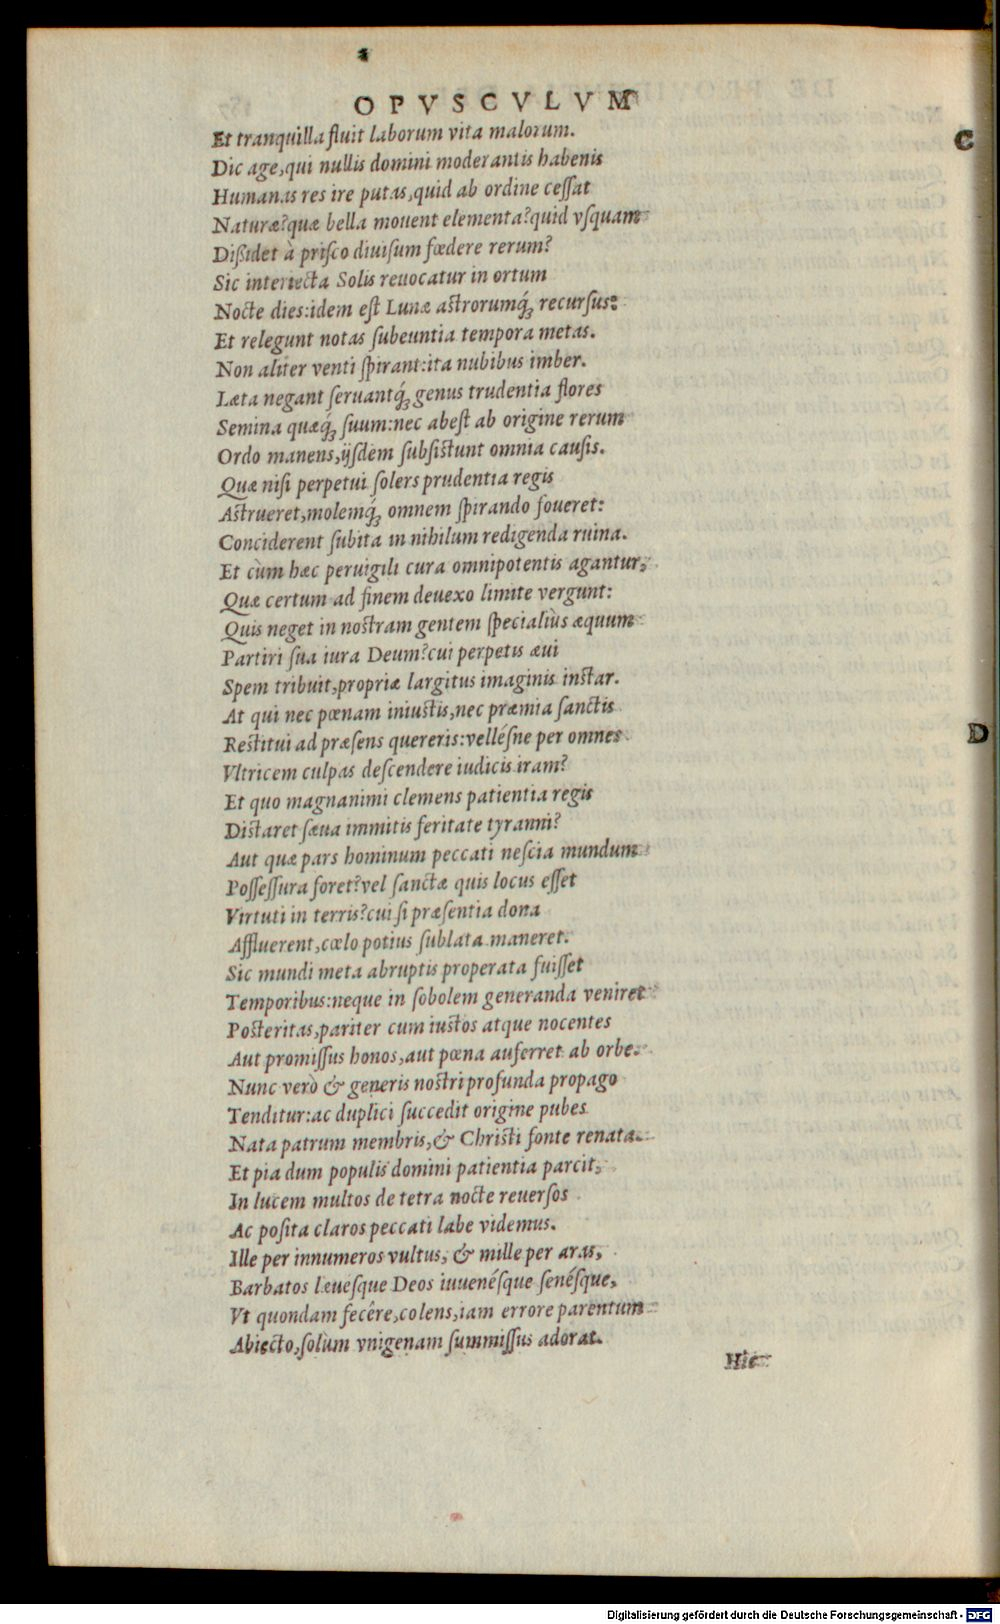 OPVSCVLVM
Et tranquilla fluit laborum vita malorum.
C
Dic age, qui nullis domini moderantis habenis
Humanas res ire putas, quid ab ordine ceſſat
Naturæ? quæ bella mouent elementa? quid vſquam
Diſsidet à priſco diuiſum fœdere rerum?
Sic interiecta Solis reuocatur in ortum
Nocte dies: idem eſt Lunæ aſtrorumq́ꝫ recurſus:
Et relegunt notas ſubeuntia tempora metas.
Non aliter venti ſpirant: ita nubibus imber.
Læta negant ſeruantq́ꝫ genus trudentia flores
Semina quæq́ꝫ ſuum: nec abeſt ab origine rerum
Ordo manens, ijſdem ſubſiſtunt omnia cauſis.
Quæ niſi perpetui ſolers prudentia regis
Aſtrueret, molemq́ꝫ omnem ſpirando foueret:
Conciderent ſubita in nihilum redigenda ruina.
Et cùm hæc peruigili cura omnipotentis agantur,
Quæ certum ad finem deuexo limite vergunt:
Quis neget in noſtram gentem ſpecialiùs æquum
Partiri ſua iura Deum? cui perpetis æui
Spem tribuit, propriæ largitus imaginis inſtar.
At qui nec pœnam iniuſtis, nec præmia ſanctis
D
Reſtitui ad præſens quereris: velléſne per omnes
Vltricem culpas deſcendere iudicis iram?
Et quo magnanimi clemens patientia regis
Diſtaret ſæua immitis feritate tyranni?
Aut quæ pars hominum peccati neſcia mundum
Poſſeſſura foret? vel ſanctæ quis locus eſſet
Virtuti in terris? cui ſi præſentia dona
Affluerent, cœlo potius ſublata maneret.
Sic mundi meta abruptis properata fuiſſet
Temporibus: neque in ſobolem generanda veniret
Poſteritas, pariter cum iuſtos atque nocentes
Aut promiſſus honos, aut pœna auferret ab orbe.
Nunc verò & generis noſtri profunda propago
Tenditur: ac duplici ſuccedit origine pubes
Nata patrum membris, & Chriſti fonte renata.
Et pia dum populis domini patientia parcit,
In lucem multos de tetra nocte reuerſos
Ac poſita claros peccati labe videmus.
Ille per innumeros vultus, & mille per aras,
Barbatos leueſque Deos iuuenéſque ſenéſque,
Vt quondam fecêre, colens, iam errore parentum
Abiecto, ſolùm vnigenam ſummiſſus adorat.
Hic
Digitalisierung gefördert durch die Deutsche Forschungsgemeinschaft - DFG